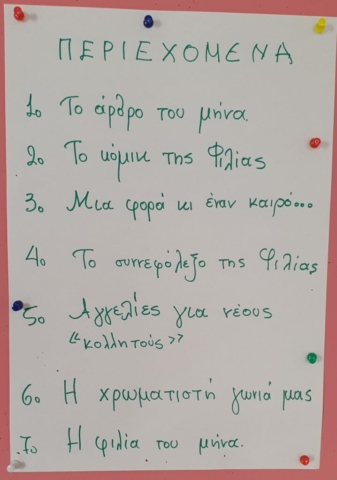 ΠΕΡΙΕΧΟΜΕΝΑ
1ο Το άρθρο του μήνα
2ο Το κόμικ της Φιλίας
3ο Μια φορά κι έναν καιρό...
4ο Το συννεφόλεξο της Φιλίας
5ο Αγγελίες για νέους
«κολλητούς»
6ο Η χρωματιστή γωνιά μας
7ο Η φιλία του μήνα.